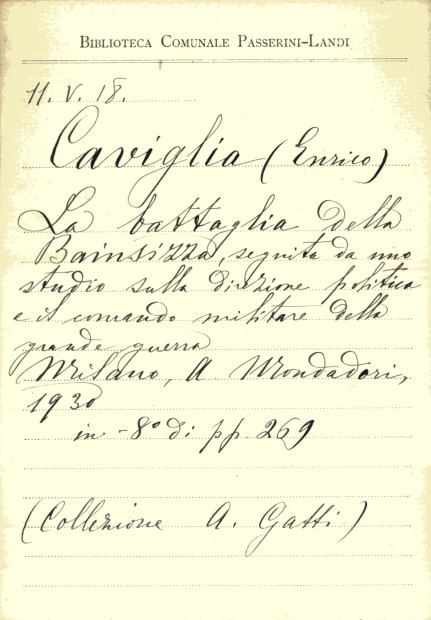 BIBLIOTECA COMUNALE PASSERINI-LANDI
11. V. 18.
Caviglia (Enrico)
La battaglia della
Bainsizza, seguita da uno
studio sulla direzione politica
e il comando militare della
grande guerra
Milano, A Mondadori,
1930
in-8° di pp. 269
(Collezione A. Gatti)